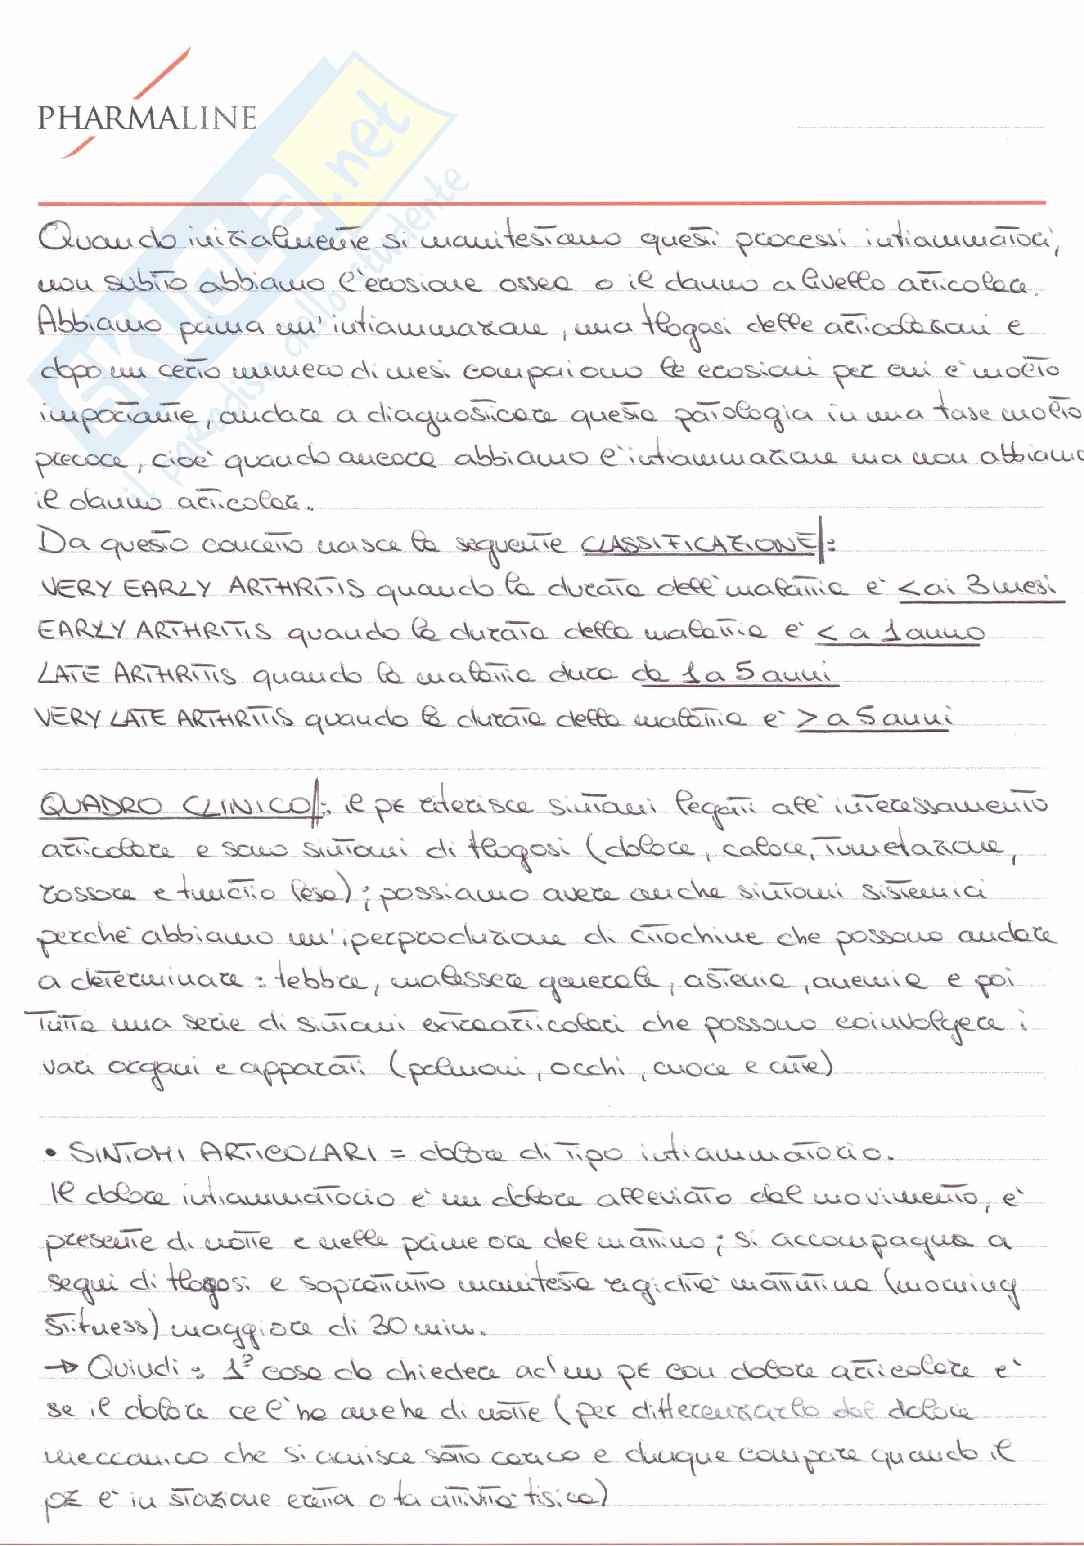 PHARMALINE
SKUOLA.net
il paradiso dello studente
Quando inizialmente si manifestano questi processi infiammatori,
non subito abbiamo l'erosione ossea o il danno a livello articolare.
Abbiamo prima un'infiammazione, una flogosi delle articolazioni e
dopo un certo numero di mesi compaiono le erosioni per cui è molto
importante, andare a diagnosticare questa patologia in una fase molto
precoce, cioè quando ancora abbiamo l'infiammazione ma non abbiamo
il danno articolar.
Da questo concetto nasce la seguente CLASSIFICAZIONE:
VERY EARLY ARTHRITIS quando la durata dell'malattia è < ai 3 mesi
EARLY ARTHRITIS quando la durata della malattia è < a 1 anno
LATE ARTHRITIS quando la malattia dura da 1 a 5 anni
VERY LATE ARTHRITIS quando la durata della malattia è > a 5 anni
QUADRO CLINICO: il pz riferisce sintomi legati all'interessamento
articolare e sono sintomi di flogosi (dolore, calore, tumefazione,
rossore e functio lesa); possiamo avere anche sintomi sistemici
perché abbiamo un'iperproduzione di citochine che possono andare
a determinare: febbre, malessere generale, astenia, anemia e poi
tutta una serie di sintomi extraarticolari che possono coinvolgere i
vari organi e apparati (polmoni, occhi, cuore e cute)
• SINTOMI ARTICOLARI = dolore di tipo infiammatorio.
Il dolore infiammatorio è un dolore alleviato dal movimento, è
presente di notte e nelle prime ore del mattino; si accompagna a
segni di flogosi e soprattutto manifesta rigidità mattutina (morning
stifness) maggiore di 30 min.
→ Quindi: 1° cosa da chiedere ad un pz con dolore articolare è
se il dolore ce l'ha anche di notte (per differenziarlo dal dolore
meccanico che si acuisce sotto carico e dunque compare quando il
pz è in stazione eretta o fa attività fisica)